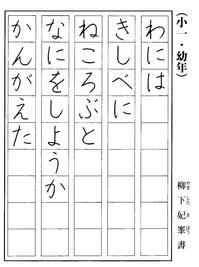 (小一・幼年)
わには
きしべに
ねころぶと
なにをしようか
かんがえた
柳下妃峯書